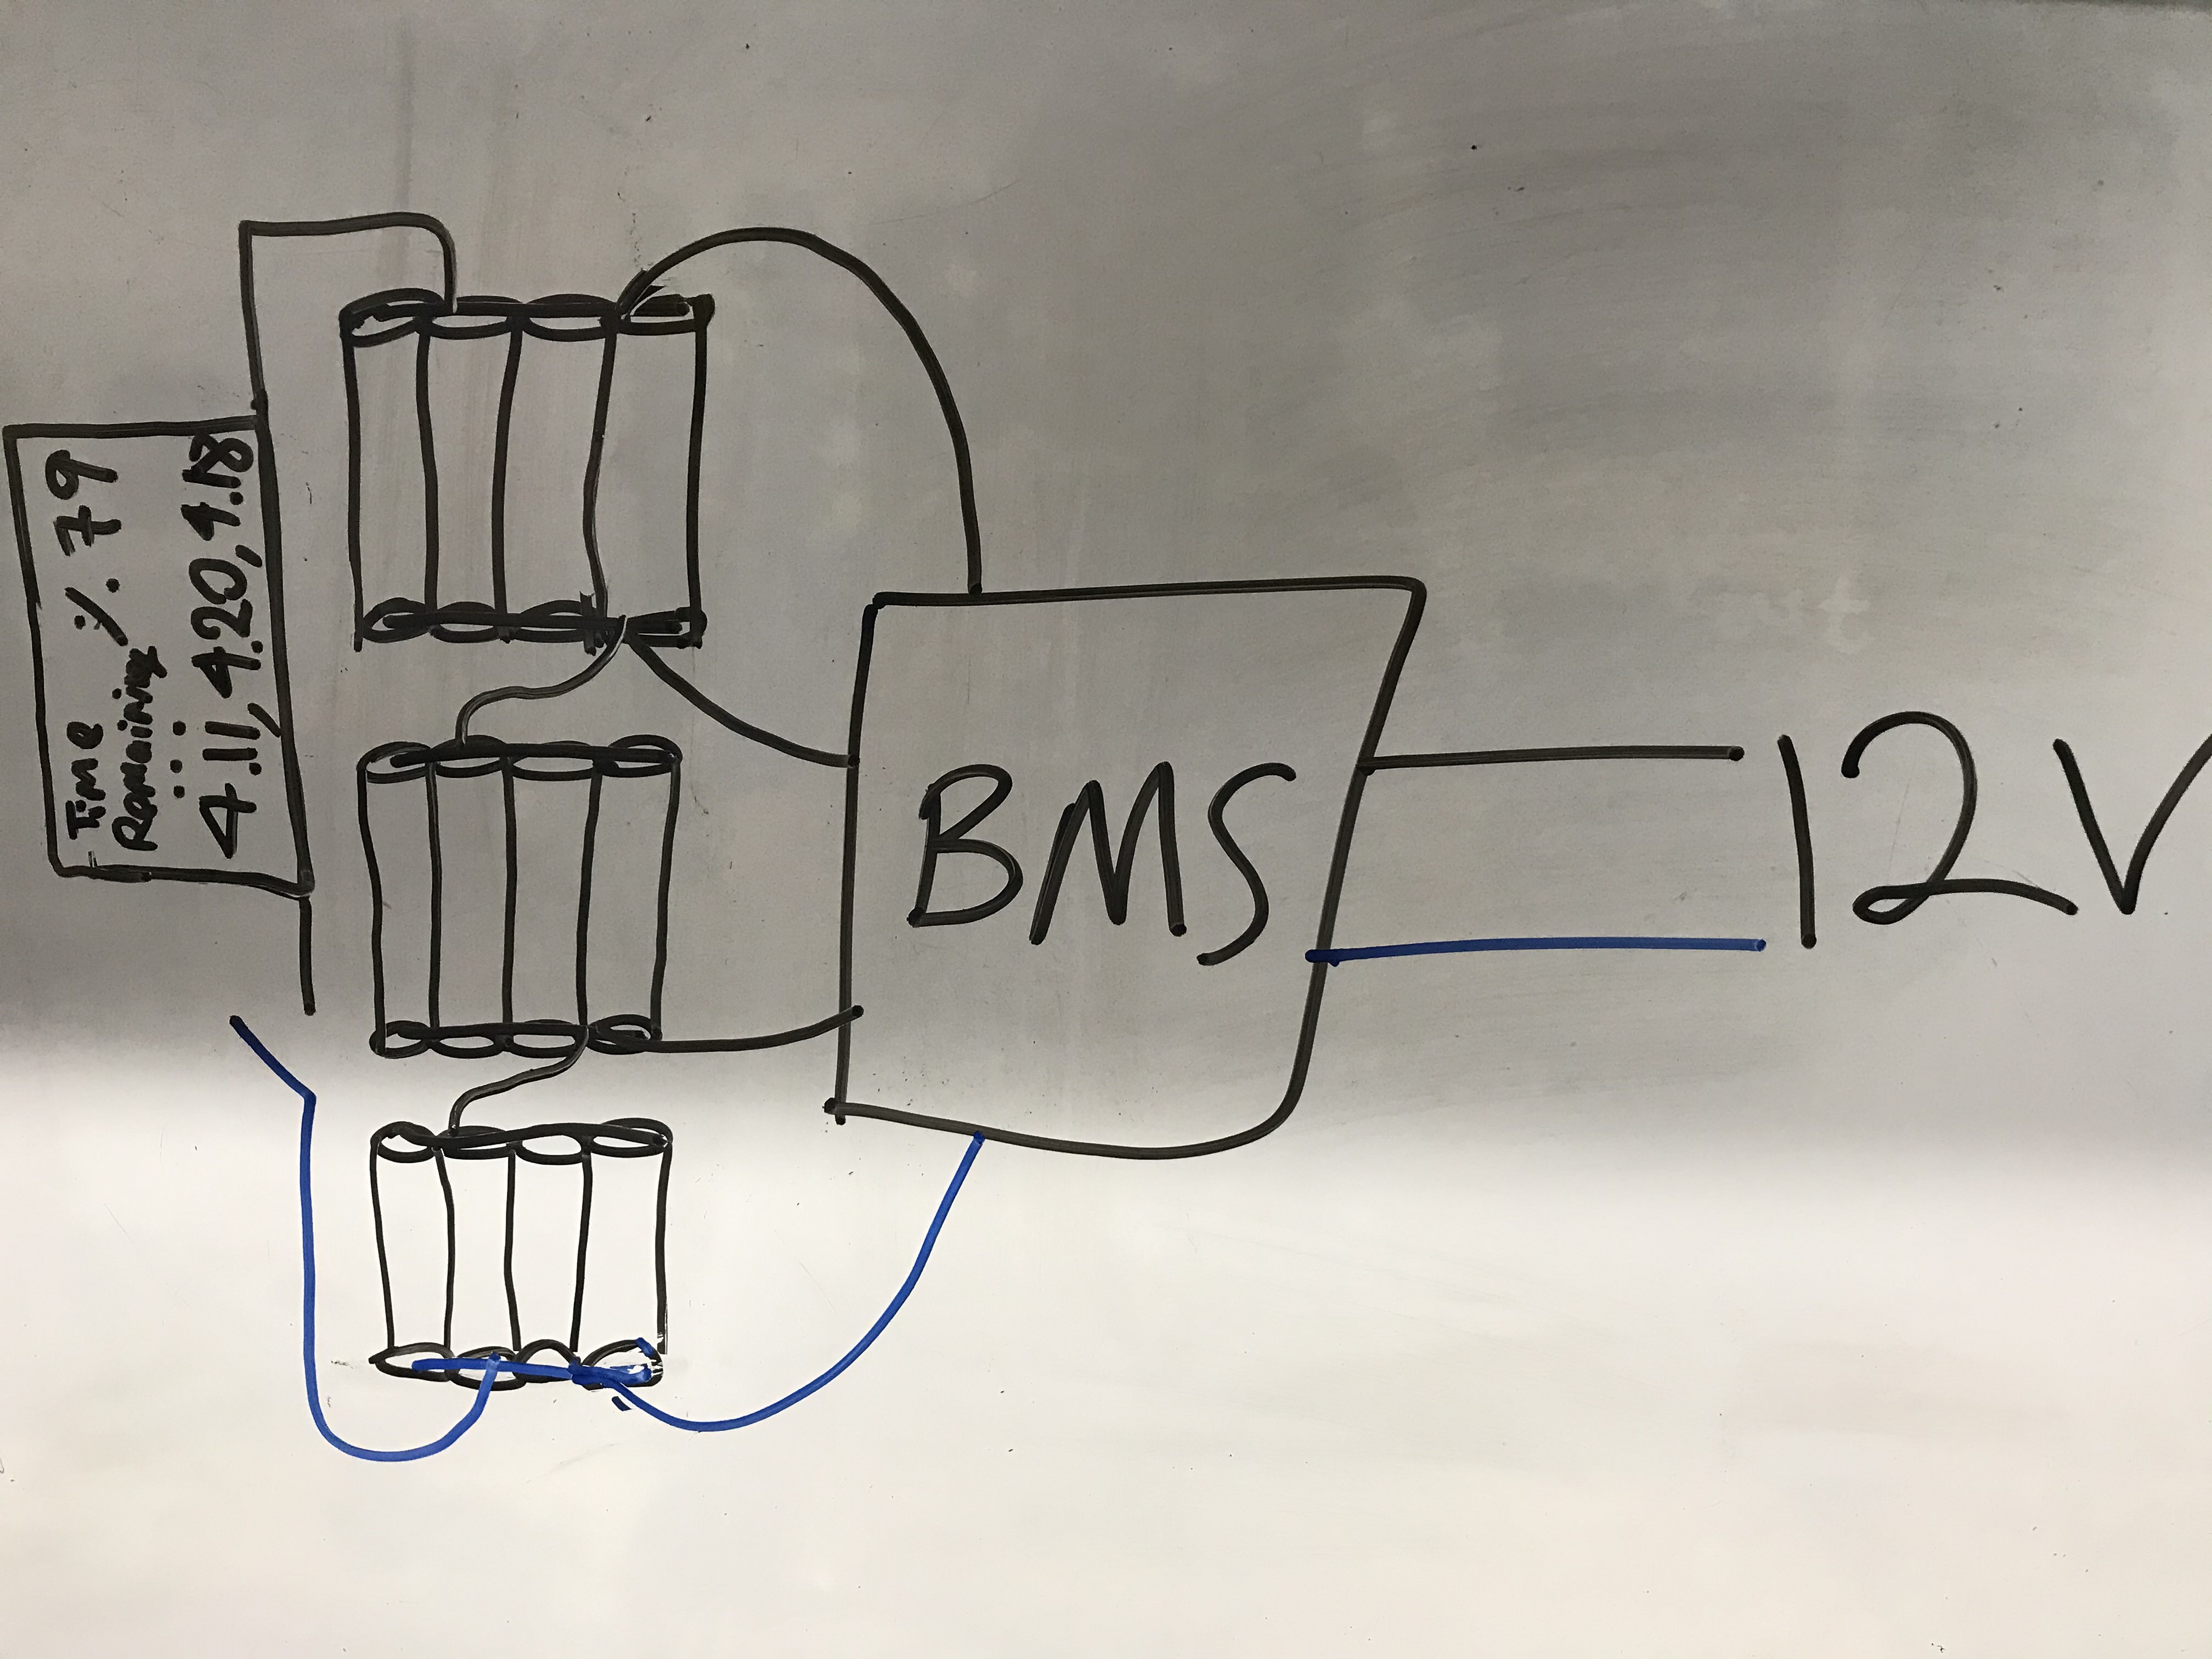 Time
Remaining % 79
:::
4.11, 4.20, 4.18
BMS
12V